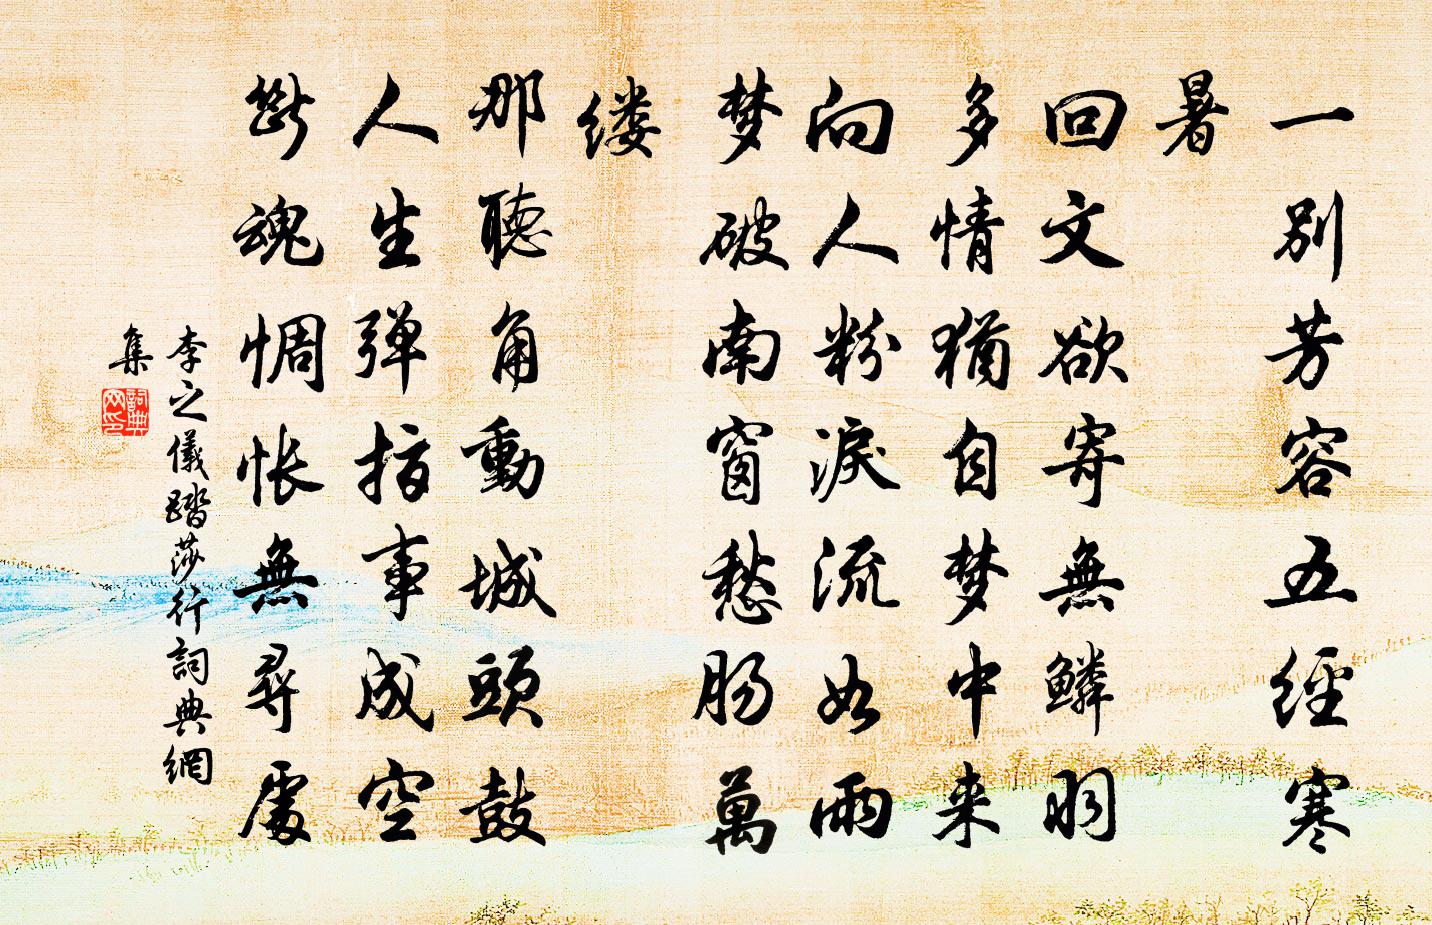 一別芳容五經寒
暑
回文欲寄無鱗羽
多情猶自梦中来
向人粉淚流如雨
梦破南窗愁肠萬
缕
那聽角動城頭鼓
人生弹指事成空
断魂惆怅無尋處
李之儀踏莎行詞典網
集
詞典
网印